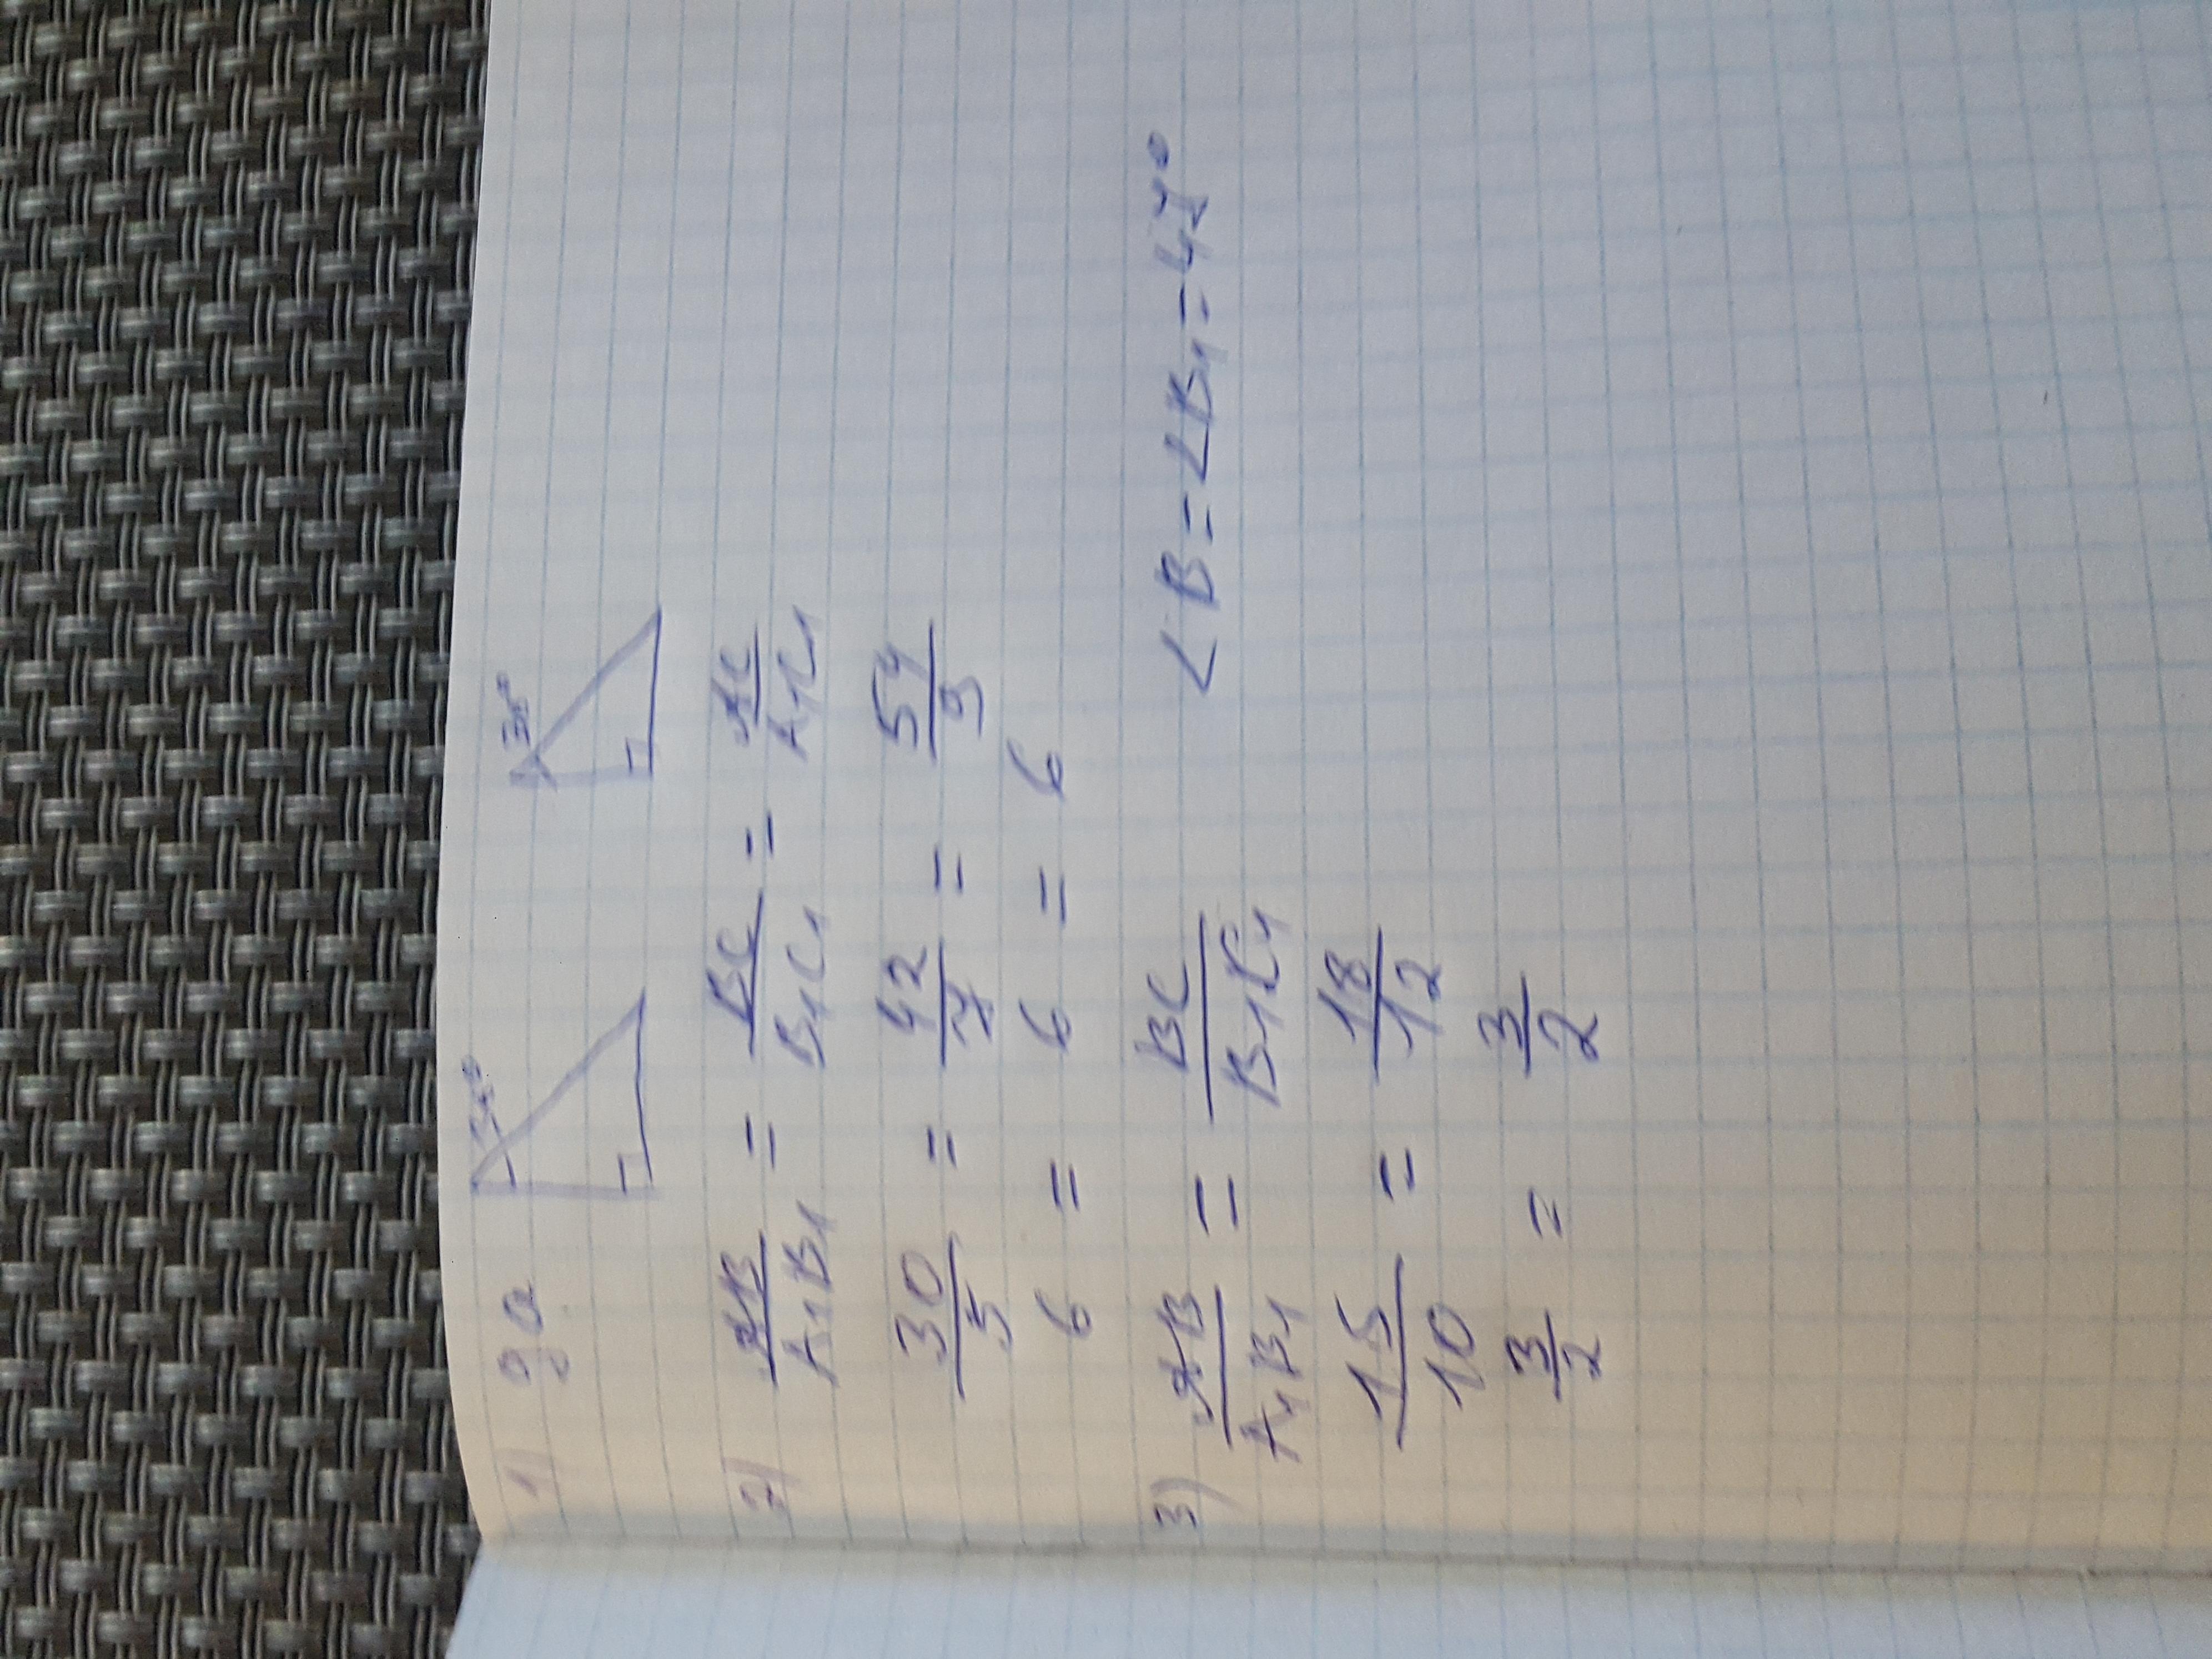 1) да 35° 35°
2) AB/A₁B₁ = BC/B₁C₁ = AC/A₁C₁
30/5 = 42/7 = 54/9
6 = 6 = 6
3) AB/A₁B₁ = BC/B₁C₁ ∠B = ∠B₁ =
15/10 = 18/12
3/2 = 3/2